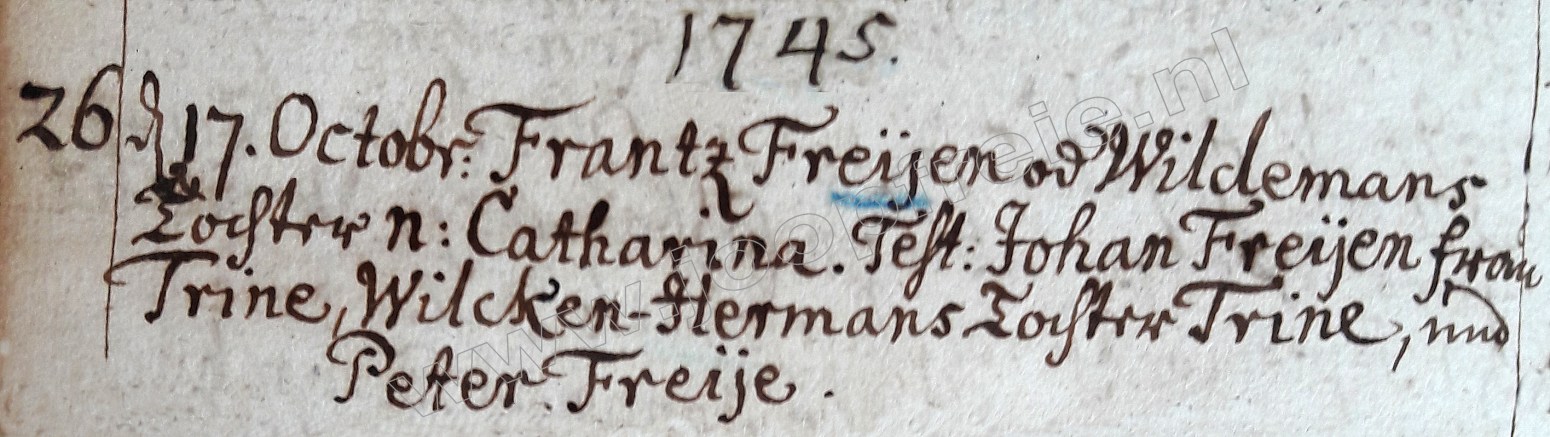 1745.
26 d 17. Octobr: Frantz Freijen od Wildemans
Tochter n: Catharina. Test: Johan Freijen frau
Trine, Wilcken-Hermans Tochter Trine, und
Peter Freije.